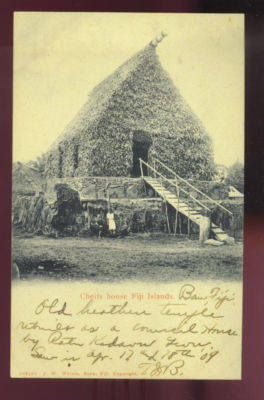 Cheifs house Fiji Islands. Bau Fiji.
Old heathen temple
as a council House
by Ratu Kadavu Levu,
in Apr. 17 & 18th 09
J. W. Waters, Suva, Fiji. Copyright.